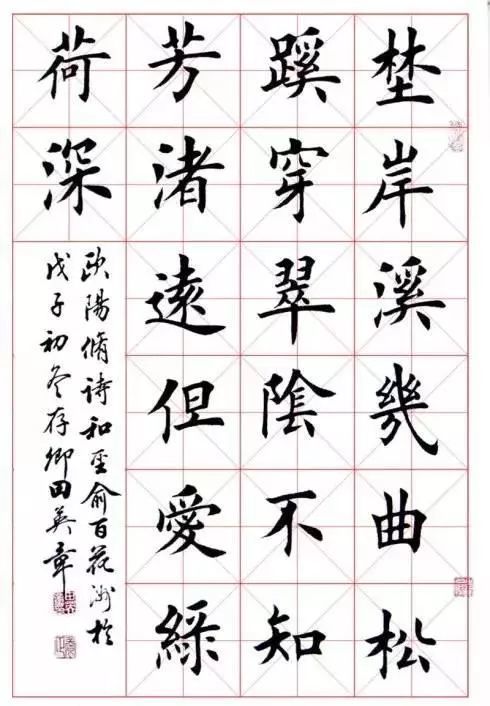 埜岸溪幾曲松
蹊穿翠陰不知
芳渚遠但愛綠
荷深
欧陽脩詩和聖俞百花洲於
戊子初冬存卿田英章